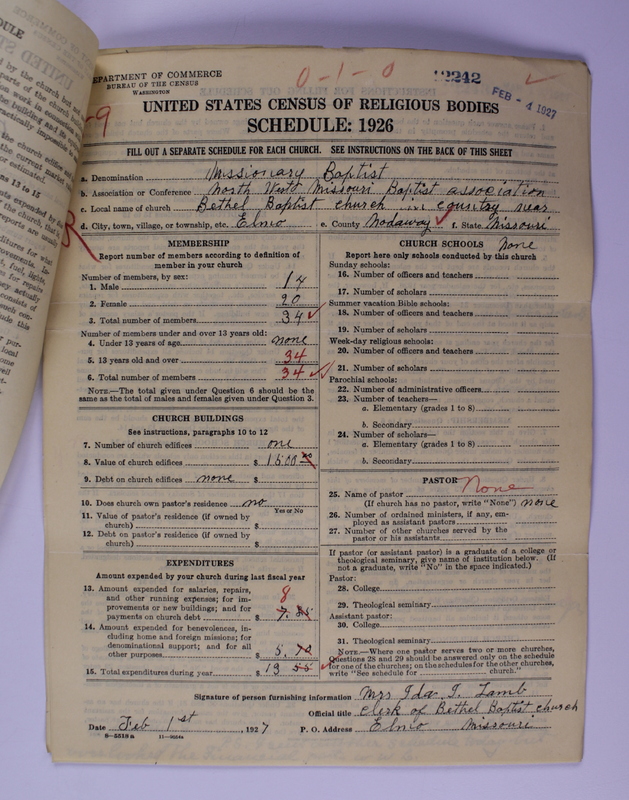 DEPARTMENT OF COMMERCE
BUREAU OF THE CENSUS
WASHINGTON
0-1-0
12242
FEB - 4 1927
-9
UNITED STATES CENSUS OF RELIGIOUS BODIES
SCHEDULE: 1926
FILL OUT A SEPARATE SCHEDULE FOR EACH CHURCH. SEE INSTRUCTIONS ON THE BACK OF THIS SHEET
a. Denomination Missionary Baptist
b. Association or Conference North West Missouri Baptist association
c. Local name of church Bethel Baptist church in country near
d. City, town, village, or township, etc. Elmo e. County Nodaway f. State Missouri
MEMBERSHIP
Report number of members according to definition of
member in your church
Number of members, by sex:
1. Male 14
2. Female 20
3. Total number of members 34
Number of members under and over 13 years old:
4. Under 13 years of age none
5. 13 years old and over 34
6. Total number of members 34
NOTE.—The total given under Question 6 should be the
same as the total of males and females given under Question 3.
CHURCH BUILDINGS
See instructions, paragraphs 10 to 12
7. Number of church edifices one
8. Value of church edifices $ 1500 00
9. Debt on church edifices none $
10. Does church own pastor's residence no
Yes or No
11. Value of pastor's residence (if owned by
church) $
12. Debt on pastor's residence (if owned by
church) $
EXPENDITURES
Amount expended by your church during last fiscal year
13. Amount expended for salaries, repairs,
and other running expenses; for im-
provements or new buildings; and for
payments on church debt $ 7.85
8
14. Amount expended for benevolences, in-
cluding home and foreign missions; for
denominational support; and for all
other purposes $ 5.70
15. Total expenditures during year $ 13 55
CHURCH SCHOOLS None
Report here only schools conducted by this church
Sunday schools:
16. Number of officers and teachers
17. Number of scholars
Summer vacation Bible schools:
18. Number of officers and teachers
19. Number of scholars
Week-day religious schools:
20. Number of officers and teachers
21. Number of scholars
Parochial schools:
22. Number of administrative officers
23. Number of teachers—
a. Elementary (grades 1 to 8)
b. Secondary
24. Number of scholars—
a. Elementary (grades 1 to 8)
b. Secondary
PASTOR None
25. Name of pastor
(If church has no pastor, write "None") none
26. Number of ordained ministers, if any, em-
ployed as assistant pastors
27. Number of other churches served by the
pastor or his assistants
If pastor (or assistant pastor) is a graduate of a college or
theological seminary, give name of institution below. (If
not a graduate, write "No" in the space indicated.)
Pastor:
28. College
29. Theological seminary
Assistant pastor:
30. College
31. Theological seminary
NOTE.—Where one pastor serves two or more churches,
Questions 28 and 29 should be answered only on the schedule
for one of the churches; on the schedules for the other churches,
write "See schedule for church."
Signature of person furnishing information Mrs Ida T. Lamb
Official title Clerk of Bethel Baptist church
Date Feb 1st, 1927 P. O. Address Elmo Missouri
8-5518a 11-9034a